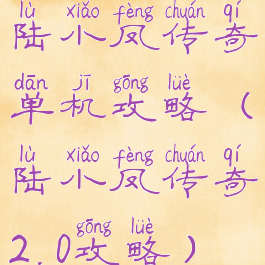 lù xiǎo fèng chuán qí
陆小凤传奇
dān jī gōng lüè
单机攻略（
lù xiǎo fèng chuán qí
陆小凤传奇
gōng lüè
2.0攻略）